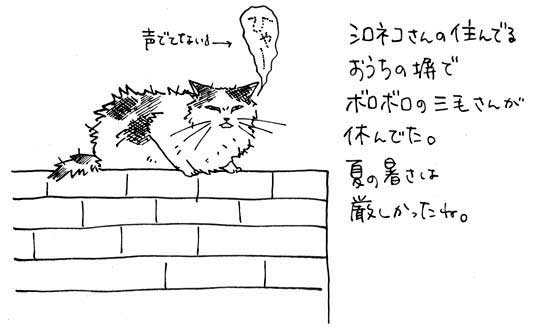 声でてない!→
シロネコさんの住んでる
おうちの塀で
ボロボロの三毛さんが
休んでた。
夏の暑さは
厳しかったね。